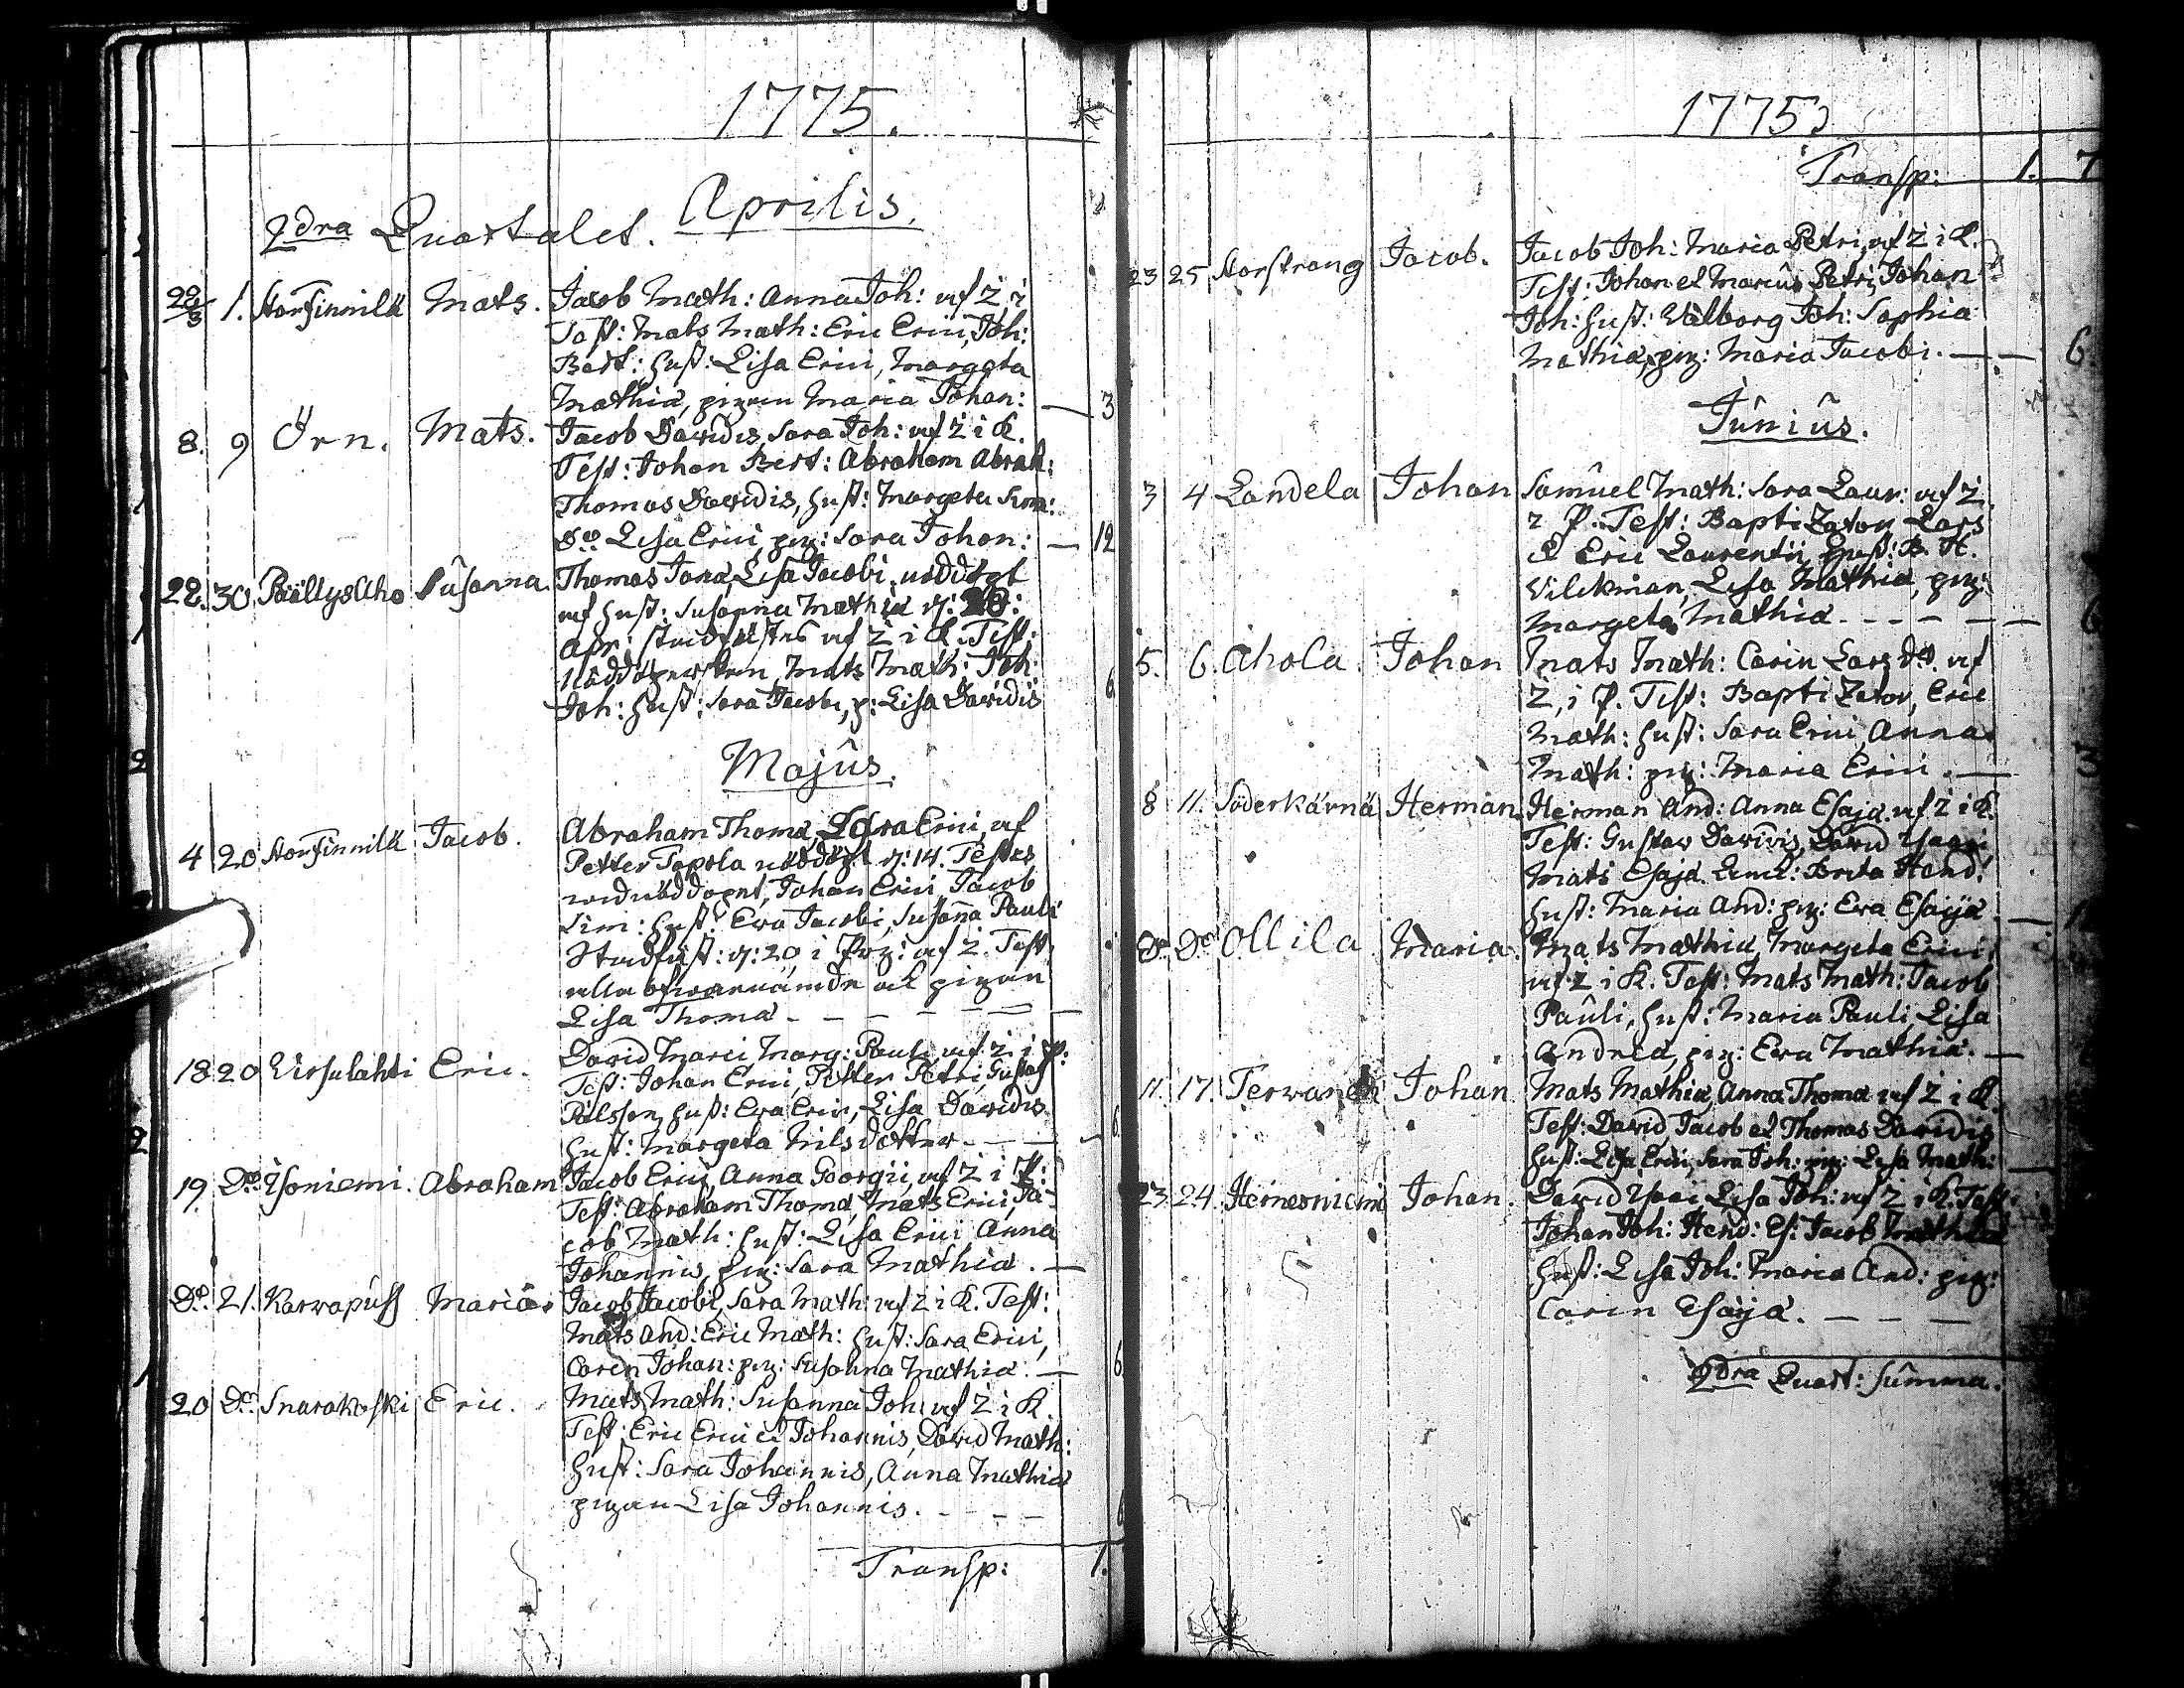 1775.
Aprilis.
2dra Quartalet.
22/3 1. Storfinnilä Mats. Jacob Math: Anna Joh: af Z i
Test: Mats Math: Eric Erici, Joh:
Bert: hust: Lisa Erici, Margeta
Mathiæ, pigan Maria Johan: — 3
8. 9 Örn. Mats. Jacob Davidis, Sara Joh: af Z i K.
Test: Johan Bert: Abraham Abrah:
Thomas Davidis, hust: Margeta Sim:
Do Lisa Erici, pig: Sara Johan: — 12
22. 30 Susanna Thomas Lisa Jacobi, nöddöpt
af hust: Susanna Mathiæ d: 28:
Apr: stadfästes af Z i K. Test:
Nöddöperskan, Mats Math: Joh:
Joh: hust: Sara Jacobi, p: Lisa Davidis 6
Majus.
4 20 Storfinnilä Jacob. Abraham Thomæ, Erici, af
Petter Topola nöddöpt d: 14. Testes
wid nöddopet, Johan Erici, Jacob
Sim: hust: Ewa Jacobi, Susanna Pauli
Stadfäst: d: 20, i af Z. Test:
alla ofwannämde ock pigan
Lisa Thomæ - - - - -
18 20 Wirsulahti Eric. David Marci Marg: Pauli af Z i P:
Test: Johan Erici, Petter Petri, Gustaf
Pålsson, hust: Ewa Erici, Lisa Davidis
hust: Margeta Nilsdotter - - - 6.
19. Do Ysoniemi. Abraham Jacob Erici, Anna Georgii, af Z i K:
Test: Abraham Thomæ, Mats Erici, Ja-
cob Math: hust: Lisa Erici Anna
Johannis, pig: Sara Mathiæ. —
Do. 21. Karwapuss Maria. Jacob Jacobi, Sara Math: af Z i K. Test:
Mats And: Eric Math: hust: Sara Erici,
Caren Johan: pig: Susanna Mathiæ. — 6
20 Do. Snarakoski Eric. Mats Math: Susanna Joh: af Z i K.
Test: Eric Erici et Johannis, David Math:
hust: Sara Johannis, Anna Mathiæ
pigan Lisa Johannis. - - - - 6
Transp: 1.
1775
Transp: 1. 7
23 25 Storstrang Jacob. Jacob Joh: Maria Petri, af Z i K.
Test: Johan et Marcus Petri, Johan
Joh: hust: Walborg Joh: Sophia
Mathiæ, pig: Maria Jacobi. — — 6.
Junius.
3 4 Landela Johan Samuel Math: Sara Laur: af Z.
i P. Test: Baptizator, Lars
& Eric Laurentii, hust: B. H.
Vilckman, Lisa Mathiæ, pig:
Margeta Mathiæ. - - - - 6
5. 6. Ahola. Johan Mats Math: Carin Larsdr. af
Z, i P. Test: Baptizator, Eric
Math: hust: Sara Erici, Anna
Math: pig: Maria Erici. — 3
8 11. Söderkärnä Herman. Herman And: Anna Esajæ af Z i K.
Test: Gustav Davidis, David Ysaaci
Mats Esajæ Brita Hend:
hust: Maria And: pig: Ewa Esaijæ
Do Do Ollila Maria. Mats Mathiæ, Margeta Erici,
af Z i K. Test: Mats Math: Jacob
Pauli, hust: Maria Pauli, Lisa
Andreæ, pig: Ewa Mathiæ. —
11. 17. Johan. Mats Mathiæ, Anna Thomæ af Z i K.
Test: David, Jacob et Thomas Davidis
hust: Lisa Erici, Sara Joh: pig: Lisa Math:
23 24. Hernesniemi Johan. David Ysaac Lisa Joh: af Z i K. Test:
Johan Joh: Hend: Es: Jacob Mathiæ
hust: Lisa Joh: Maria And: pig:
Carin Esaijæ. - - -
2dra Quart: Summa.